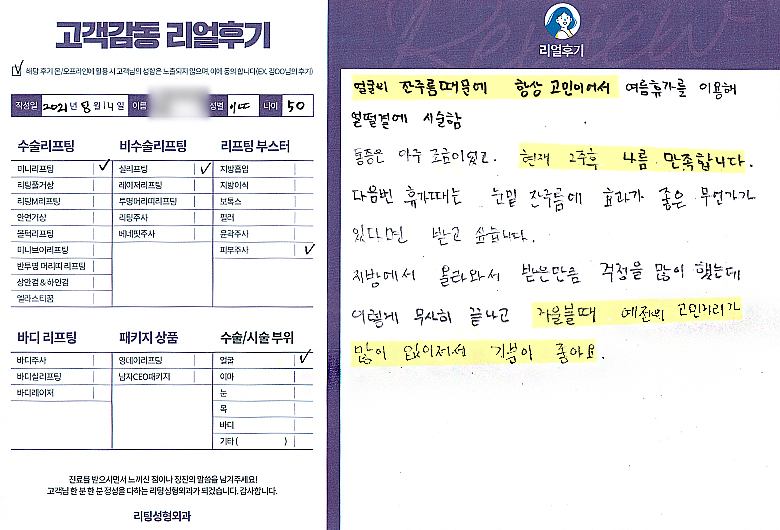 고객감동 리얼후기
해당 후기 온/오프라인에 활용 시 고객님의 성함은 노출되지 않으며, 이에 동의 합니다(EX. 김OO님의 후기)
작성일 2021년 8월 14일 이름 성별 여 나이 50
수술리프팅
미니리프팅 ✓
리팅풀거상
리팅M리프팅
안면거상
몽턱리프팅
미니브이리프팅
반투명 머리띠 리프팅
상안검 & 하안검
엘라스티꿈
비수술리프팅
실리프팅 ✓
레이저리프팅
투명머리띠리프팅
리팅주사
베네핏주사
리프팅 부스터
지방흡입
지방이식
보톡스
필러
윤곽주사
피부주사 ✓
바디 리프팅
바디주사
바디실리프팅
바디레이저
패키지 상품
영데이리프팅
남자CEO패키지
수술/시술 부위
얼굴 ✓
이마
눈
목
바디
기타 ( )
진료를 받으시면서 느끼신 점이나 칭찬의 말씀을 남겨주세요!
고객님 한 분 한 분 정성을 다하는 리팅성형외과가 되겠습니다. 감사합니다.
리팅성형외과
리얼후기
얼굴의 잔주름때문에 항상 고민이어서 여름휴가를 이용해
얼떨결에 시술함
통증은 아주 조금이었고. 현재 2주후 나름 만족합니다.
다음번 휴가때는 눈밑 잔주름에 효과가 좋은 무언가가
있다면 받고 싶습니다.
지방에서 올라와서 받은만큼 걱정을 많이 했는데
이렇게 무사히 끝나고 거울볼때 예전의 고민거리가
많이 없어져서 기분이 좋아요.